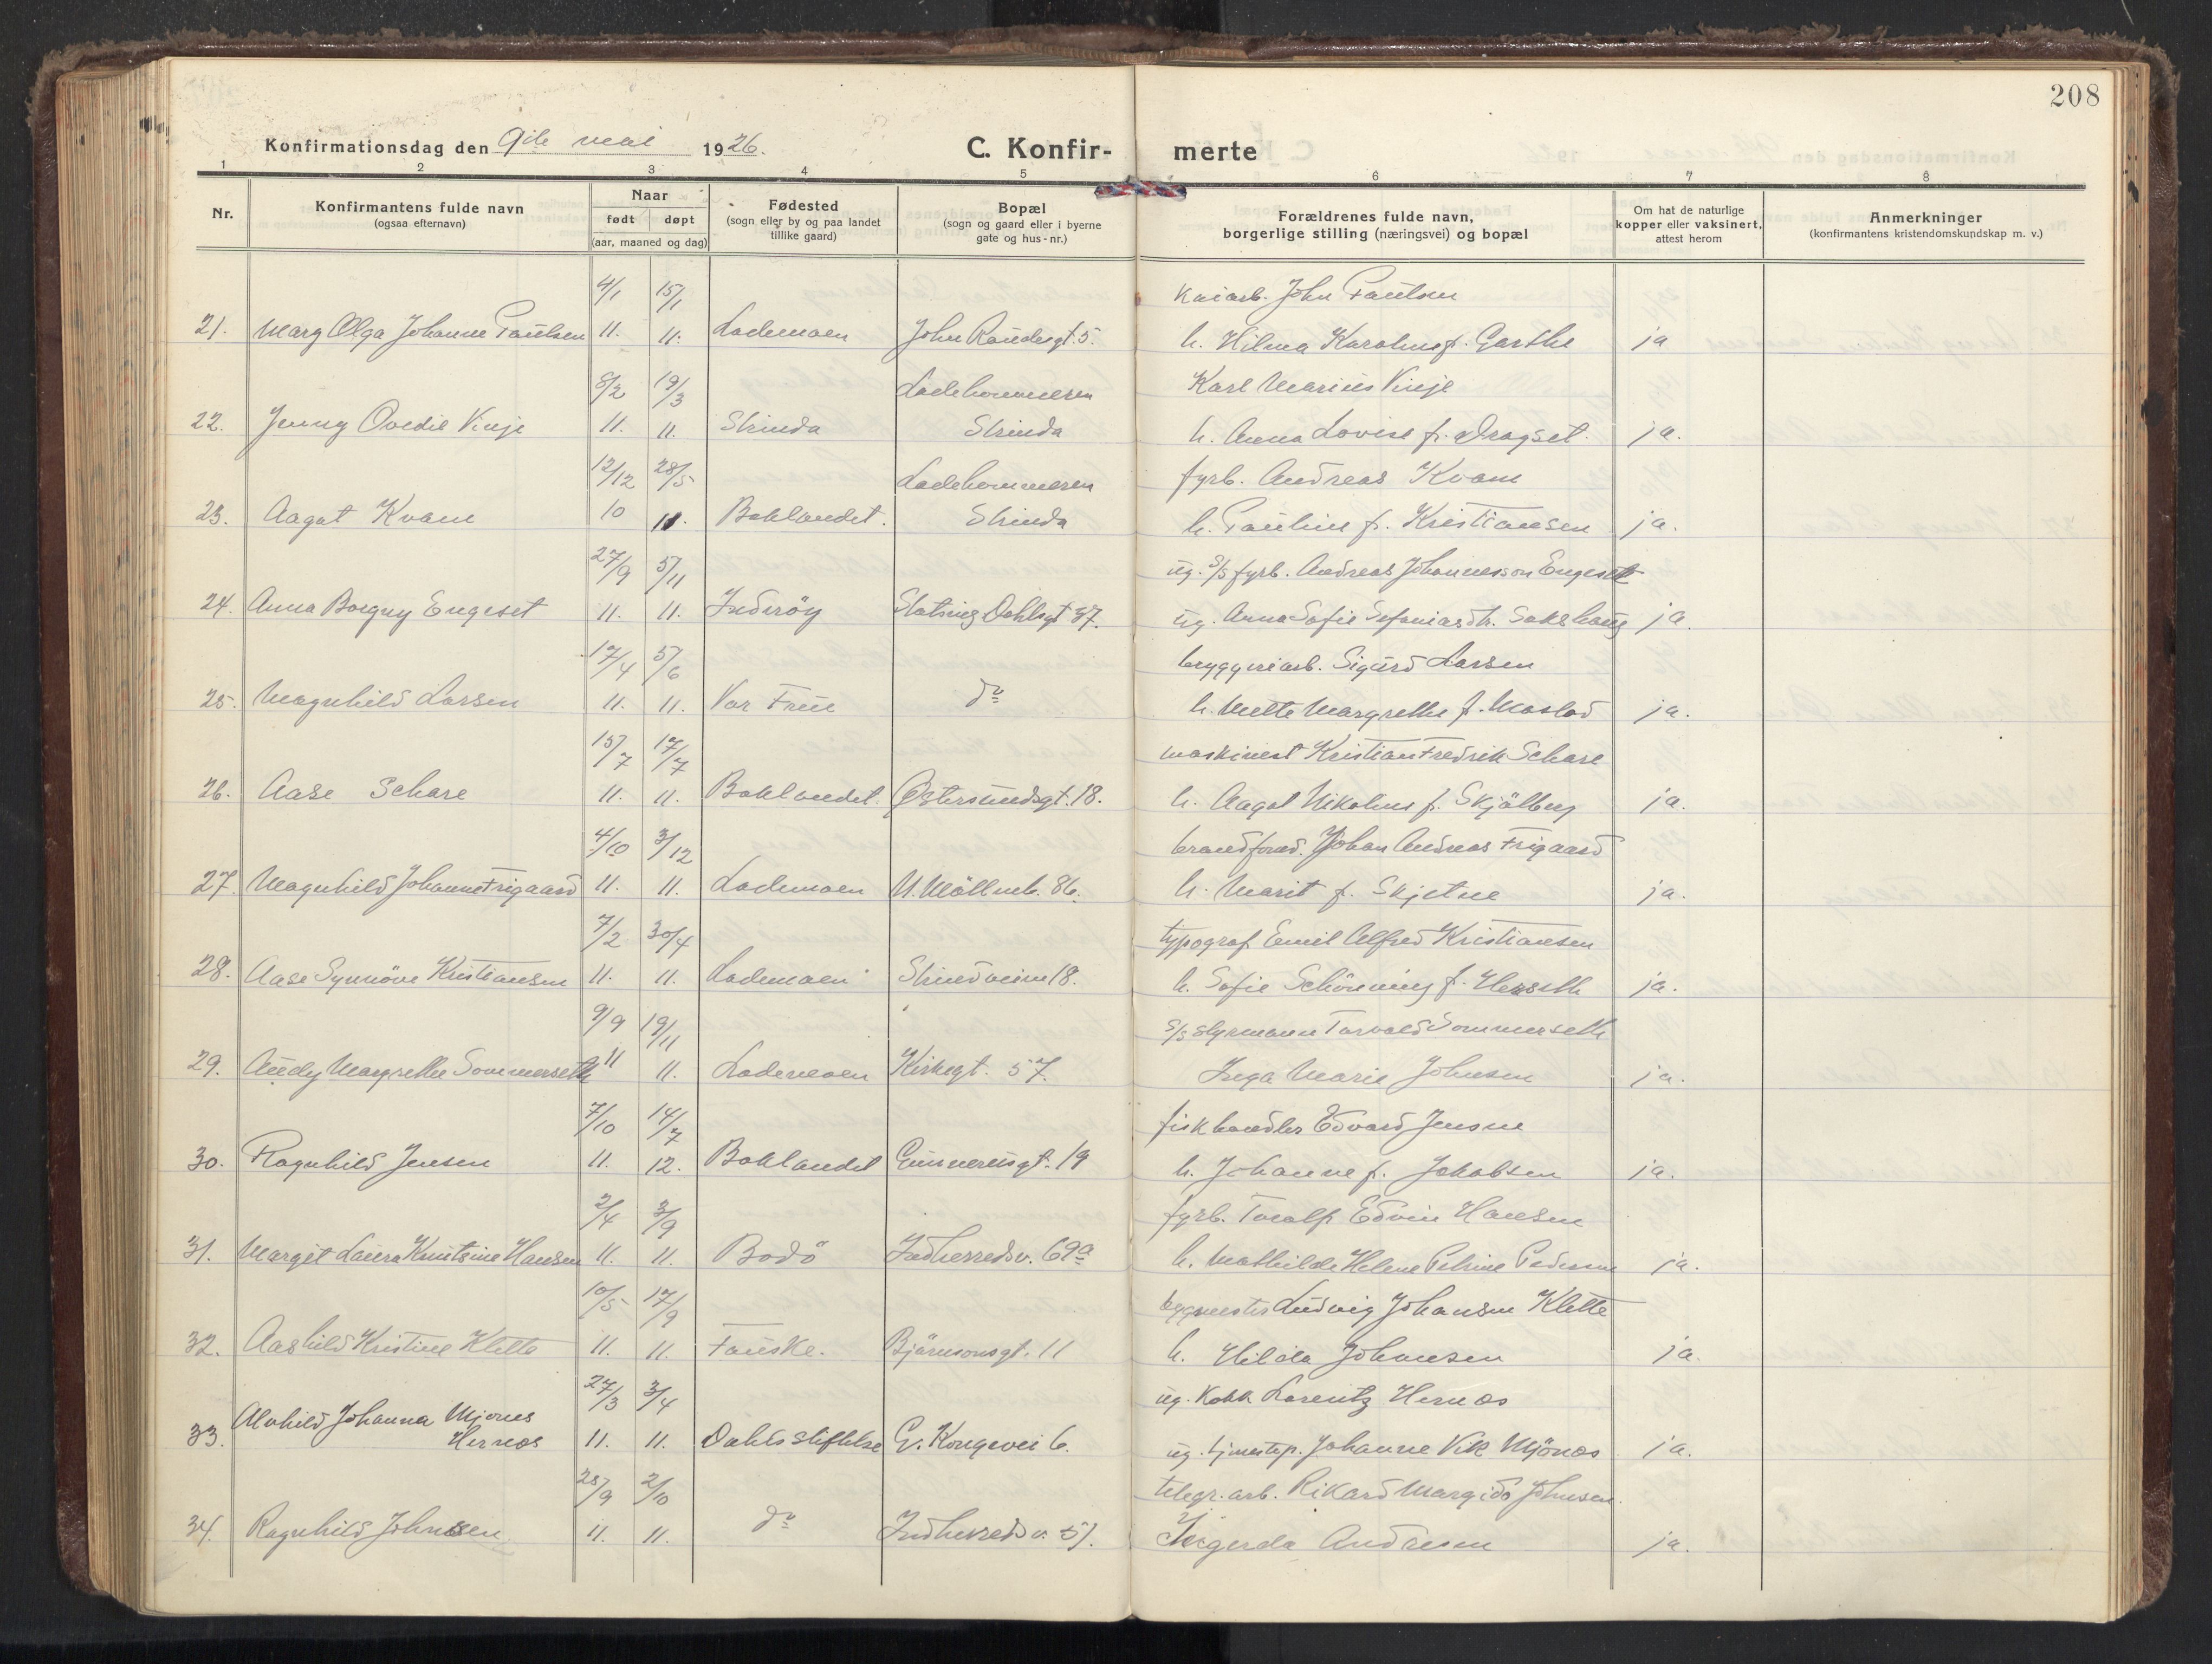 208
Konfirmationsdag den 9de mai 1926.
C. Konfirmerte
1 2 3 4 5 6 7 8
Nr.
Konfirmantens fulde navn
(ogsaa efternavn)
Naar
født døpt
(aar, maaned og dag)
Fødested
(sogn eller by og paa landet
tillike gaard)
Bopæl
(sogn og gaard eller i byerne
gate og hus-nr.)
Forældrenes fulde navn,
borgerlige stilling (næringsvei) og bopæl
Om hat de naturlige
kopper eller vaksinert,
attest herom
Anmerkninger
(konfirmantens kristendomskundskap m. v.)
4/1 15/1 kaiarb. John Paulsen
21. Marg Olga Johanne Paulsen 11. 11. Lademoen John Raudesgt. 5. h. Hilma Karoline f. Garthe ja
8/2 19/3 Ladehammeren Karl Marius Vinje
22. Jenny Ovedie Vinje 11. 11. Strinda Strinda h. Anna Lovise f. Dragset. ja.
12/12 28/5 Ladehammeren fyrb. Andreas Kvam
23. Aagot Kvam 10 11. Baklandet. Strinda h. Pauline f. Kristiansen ja.
27/9 5/11 ug. S/S fyrb. Andreas Johannesson Engeset
24. Anna Borgny Engeset 11. 11. Inderöy Statsing Dahlsgt 37. ug. Anna Sofie Sefaniasdtr. Sakshaug ja.
17/4 5/6 bryggeriarb. Sigurd Larsen
25. Magnhild Larsen 11. 11. Vor Frue do h. Mette Margrethe f. Mostad ja.
15/7 17/7 maskinist Kristian Fredrik Schare
26. Aase Schare 11. 11. Baklandet. Østersundsgt. 18. h. Aagot Nikoline f. Skjölberg ja.
4/10 3/12 brandform. Johan Andreas Frigaard
27. Magnhild Johanne Frigaard 11. 11. Lademoen N. Möllenb. 86. h. Marit f. Skjetne ja.
7/2 30/4 typograf Emil Alfred Kristiansen
28. Aase Synnöve Kristiansen 11. 11. Lademoen Strindveien 18. h. Sofie Schönning f. Herseth ja.
9/9 19/11 S/S styrmann Torvald Sommerseth
29. Audy Margrethe Sommerseth 11 11. Lademoen Kirkegt. 57. Inga Marie Johnsen ja.
7/10 14/7 fiskhandler Edvard Jensen
30. Ragnhild Jensen 11. 12. Baklandet Gunnerusgt. 19 h. Johanne f. Jakobsen ja.
2/4 3/9 fyrb. Toralf Edvin Hansen
31. Margit Laura Knutsine Hansen 11. 11. Bodö Indherredsv. 69a h. Mathilde Helene Petrine Pedersen ja.
10/5 17/9 bygmester Ludvig Johansen Klette
32. Aashild Kristine Klette 11. 11. Fauske. Björnsonsgt. 11 h. Hilda Johansen ja.
27/3 3/4 ug. Kokk Lorentz Hernes
33. Alvhild Johanna Mjönes Hernes 11. 11. Dahls stiftelse G. Kongevei 6. ug. tjenestep. Johanne Vik Mjönes ja.
28/9 2/10 telegr. arb. Rikard Margido Johnsen.
34. Ragnhild Johnsen 11. 11. do Indherredsv. 51. Ingerda Andresen ja.